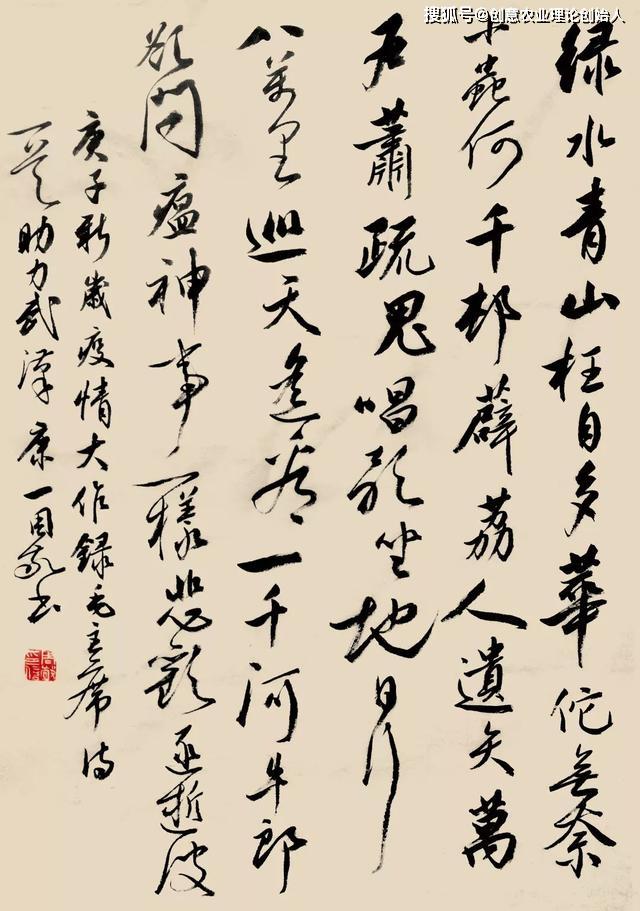 搜狐号@创意农业理论创始人
绿水青山枉自多華佗無奈
小蟲何千邨薜荔人遺矢萬
戶蕭疏鬼唱歌坐地日行
八萬里巡天遥看一千河牛郎
欲問瘟神事一樣悲歡逐逝波
庚子新歲疫情大作録毛主席诗
一首助力武漢康一周敬书